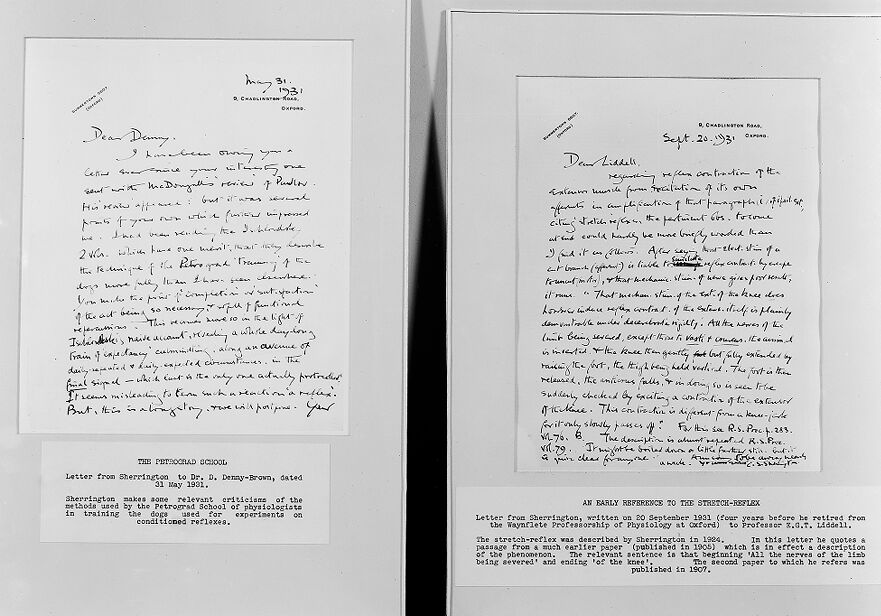 SUMMERTOWN 5087.
(OXFORD)
May 31.
1931
9, CHADLINGTON ROAD,
OXFORD.
Dear Denny.
I have been owing you a
letter ever since your interesting one
sent with McDougall's review of Pavlov.
His review appeared: but it was several
points of your own which further impressed
me. I had been reading the
2 vols. which have one merit, that they describe
the technique of the Petrograd 'training' of the
dogs more fully than I have seen elsewhere.
You make the point of completion or satisfaction
of the act being so necessary, & of functional
repercussions. This seems more so in the light of
naive account, revealing a whole day-long
train of expectancy culminating, along an avenue of
daily repeated & daily expected circumstances, in the
final signal — which last is the only one actually protocolled.
It seems misleading to term such a reaction a reflex.
But, this is a long story, & we will postpone. Yrs
THE PETROGRAD SCHOOL
Letter from Sherrington to Dr. D. Denny-Brown, dated
31 May 1931.
Sherrington makes some relevant criticisms of the
methods used by the Petrograd School of physiologists
in training the dogs used for experiments on
conditioned reflexes.
SUMMERTOWN 5087.
(OXFORD)
9, CHADLINGTON ROAD,
Sept. 20. 1931 OXFORD.
Dear Liddell.
regarding reflex contraction of the
extensor muscle from excitation of its own
afferents in amplification of that paragraph
citing stretch reflex in the pertinent obs. to come
at end could hardly be more briefly worded than
I find it as follows. After saying that elect. stim. of a
cut branch (afferent) is liable to simulate reflex contract. by escape
to uncut motor), & that mechanic. stim. of nerve gives poor result,
it runs "That mechan. stim. of the ext. of the knee does
however induce reflex contract. of the extens. itself is plainly
demonstrable under decerebrate rigidity. All the nerves of the
limb being severed, except those to vasti & crureus, the animal
is inverted, & the knee then gently but fully extended by
raising the foot, the thigh being held vertical. The foot is then
released, the anticrus falls, & in doing so is seen to be
suddenly checked by exciting a contraction of the extensor
of the knee. This contraction is different from a knee-jerk
for it only slowly passes off". For this see R.S. Proc. p. 283.
vol. 76. B. The description is almost repeated R.S. Proc.
vol. 79. It might be boiled down a little further still. but it
is quite clear for anyone.
a week. C.S. Sherrington
AN EARLY REFERENCE TO THE STRETCH-REFLEX
Letter from Sherrington, written on 20 September 1931 (four years before he retired from
the Waynflete Professorship of Physiology at Oxford) to Professor E.G.T. Liddell.
The stretch-reflex was described by Sherrington in 1924. In this letter he quotes a
passage from a much earlier paper (published in 1905) which is in effect a description
of the phenomenon. The relevant sentence is that beginning 'All the nerves of the limb
being severed' and ending 'of the knee'. The second paper to which he refers was
published in 1907.